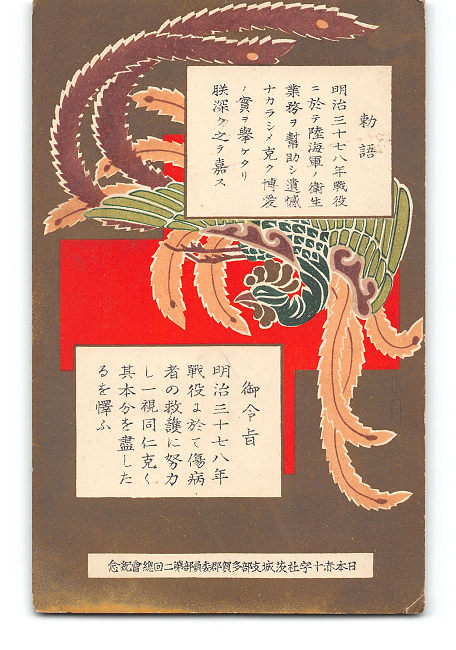 勅語
明治三十七八年戦役
ニ於テ陸海軍ノ衛生
業務ヲ幇助シ遺憾
ナカラシメ克ク博愛
ノ實ヲ擧ケタリ
朕深ク之ヲ嘉ス
御令旨
明治三十七八年
戦役に於て傷病
者の救護に努力
し一視同仁克く
其本分を盡した
るを懌ふ
日本赤十字社茨城支部多賀郡委員部第二回總會記念